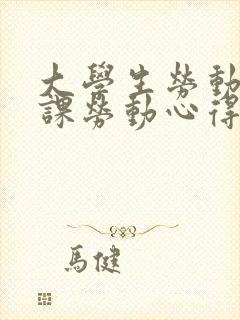 大學生勞動
課勞動心得
馬健